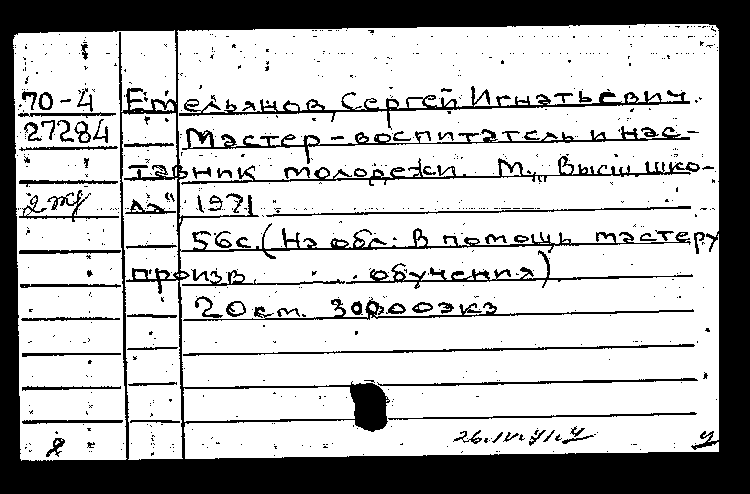 70-4 Емельянов, Сергей Игнатьевич.
27284 Мастер-воспитатель и нас-
тавник молодежи. М., "Высш. шко-
ла", 1971.
56с. (На обл.: В помощь мастеру
произв. обучения)
20 км. 30000экз